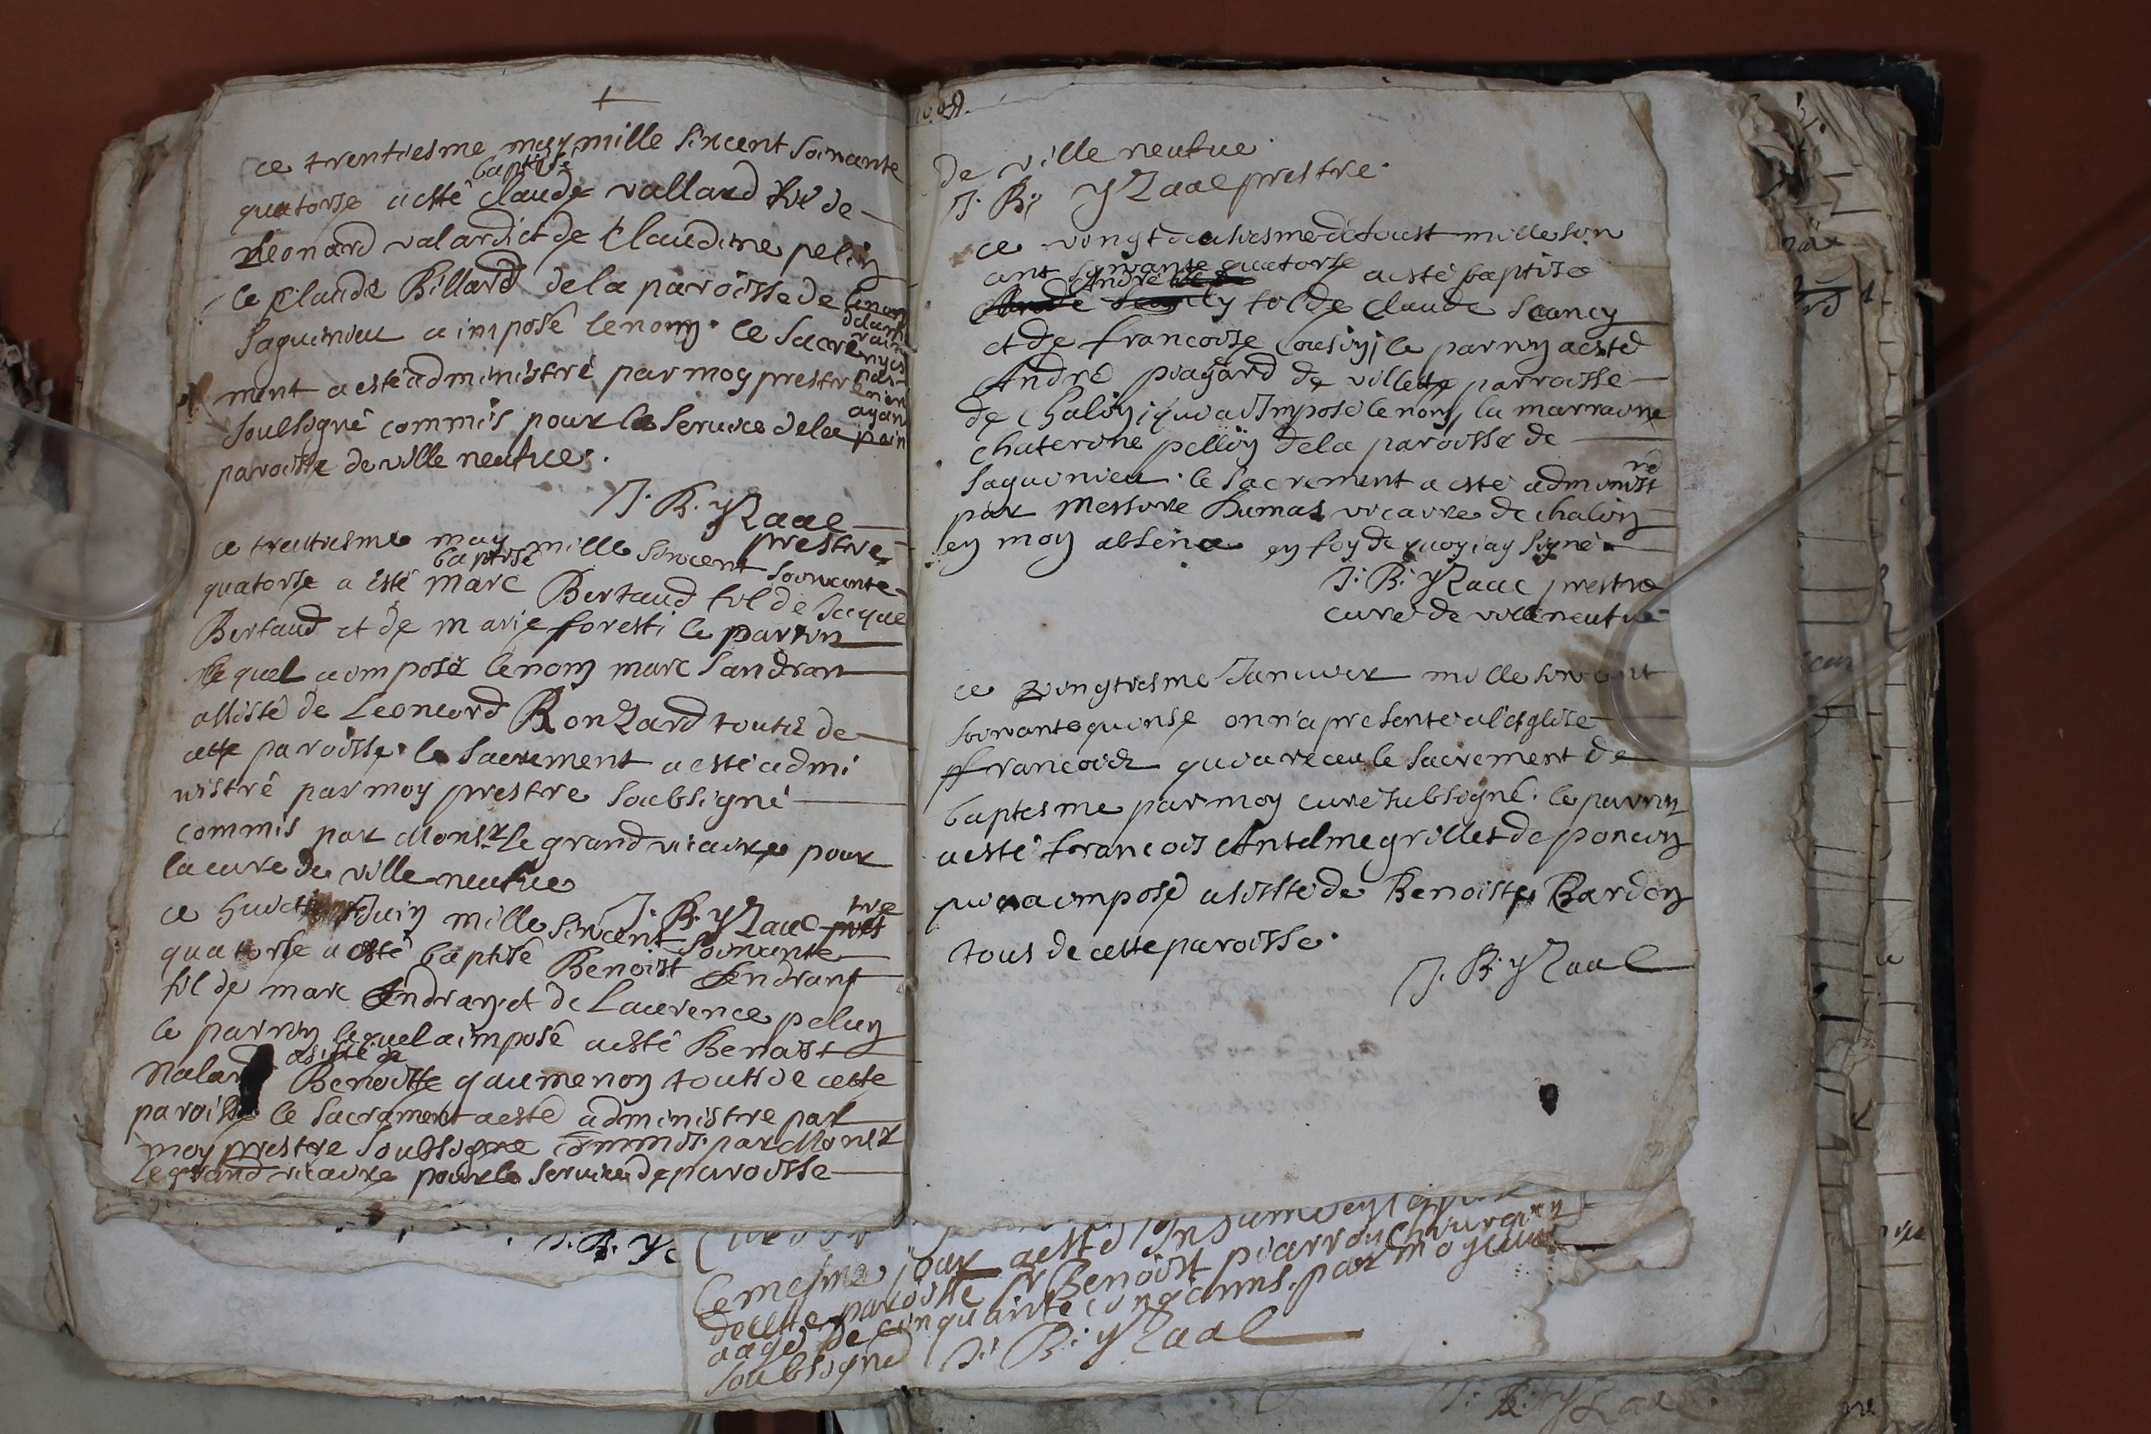 ce trentiesme may mille sixcent soixante
quatorse a esté baptisé Claude vallard fil de
Leonard valard et de Claudine pelin
le Claude Billard de la paroisse de
Saguinieu a imposé le nom. le Sacre
ment a esté administré par moy prestre
soulsigné commis pour le service de la
paroisse de ville neufve.
J. B. yZaac
prestre
ce trentiesme may mille sixcent soixante
quatorse a esté baptisé Marc Bertaud fil de Jacque
Bertaud et de marie foresti le parrin
lequel a imposé le nom marc Sandran
assisté de Leonard RonZard touts de
cette paroisse. le Sacrement a esté admi
nistré par moy prestre soubsigné
commis par Monsr. le grand vicaire pour
la cure de ville neufve
J. B. yZaac prestre
ce huict Juin mille sixcent soixante
quatorse a esté baptisé Benoist Andrant
fil de marc Andran et de Laurence pelin
le parrin lequel a imposé a esté Benoist
assisté de Benoiste gaumenon touts de cette
paroisse le Sacrament a esté administre par
moy prestre soubsigne commis par Monsr
le grand vicaire pour le service de paroisse
de ville neufve.
J. B. yZaac prestre.
ce vingt deusiesme d'Aoust mille six
cent soixante quatorse a esté baptisé
André Scancy fol de Claude Scancy
et de francoise Cousin; le parrin a esté
André piagard de villette parroisse
de Chalin; qui a Imposé le nom, la marraine
Chaterine pellin de la paroisse de
Saguinieu. le Sacrement a esté administré
par Messire Dumas vicaire de chalin
en mon absence en foy de quoy i'ay signé.
J. B. yZaac prestre
curé de ville neufve
ce vingtiesme Janvier mille sixcent
soixante quinse on n'a presenté a l'esglise
ffrancois qui a receu le sacrement de
baptesme par moy curé subsigné. le parrin
a esté francois Anselme grillet de poncin
qui a imposé assisté de Benoiste Bardon
tous de cette paroisse.
J. B. yZaac
J. B. y
Ce mesme jour a esté
de cette paroisse Sr Benoist piarron Chirurgien
aagé de cinquante cinq anns. par moy curé
soubsigné J. B. yZaac
J. B. yZaac